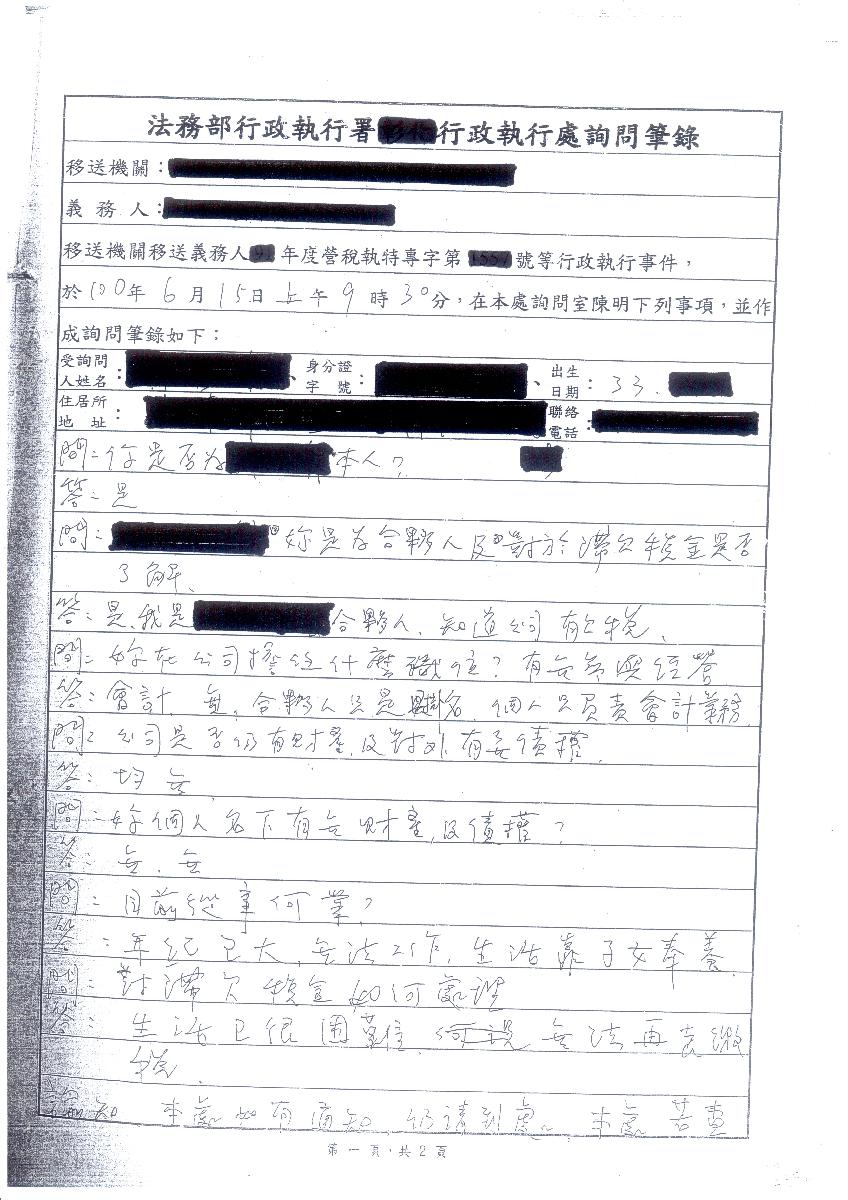 法務部行政執行署行政執行處詢問筆錄
移送機關：
義務人：
移送機關移送義務人 年度營稅執特專字第 號等行政執行事件，
於100年6月15日上午9時30分，在本處詢問室陳明下列事項，並作
成詢問筆錄如下：
受詢問人姓名： 、身分證字號： 、出生日期：33.
住居所地址： 聯絡電話：
問：你是否為 本人？
答：是
問： 妳是為合夥人及對於滯欠稅金是否
了解、
答：是、我是 合夥人、知道公司有欠稅、
問：妳在公司擔任什麼職位？有無參與經營
答：會計 無、合夥人只是掛名、個人只負責會計業務、
問：公司是否仍有財產、及對外有無債權、
答：均無
問：妳個人名下有無財產、及債權？
答：無、無
問：目前從事何業？
答：年紀已大、無法工作、生活靠子女奉養、
問：對滯欠稅金如何處理
答：生活已很困難 無法再去繳
稅、
諭知 本處如有通知、仍請到處、本處若查
第一頁，共2頁